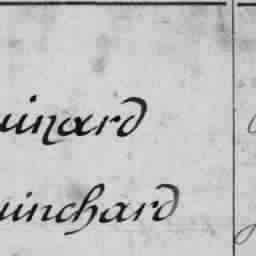 uinard
uinchard